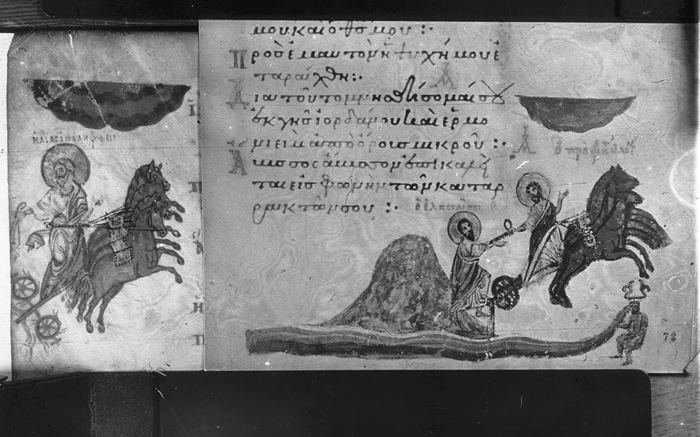 μου καὶ ὁ θς μου :
Πρὸς ἐμαυτὸν ἡ ψυχή μου ἐ
ταράχθη :
Διὰ τοῦτο μνησθήσομαί σου
ἐκ γῆς ἰορδάνου καὶ ἐρμω
νιεὶμ ἀπὸ ὄρους μικροῦ :
Ἄβυσσος ἄβυσσον ἐπικαλεῖ
ται εἰς φωνὴν τῶν καταρ
ρακτῶν σου :
72